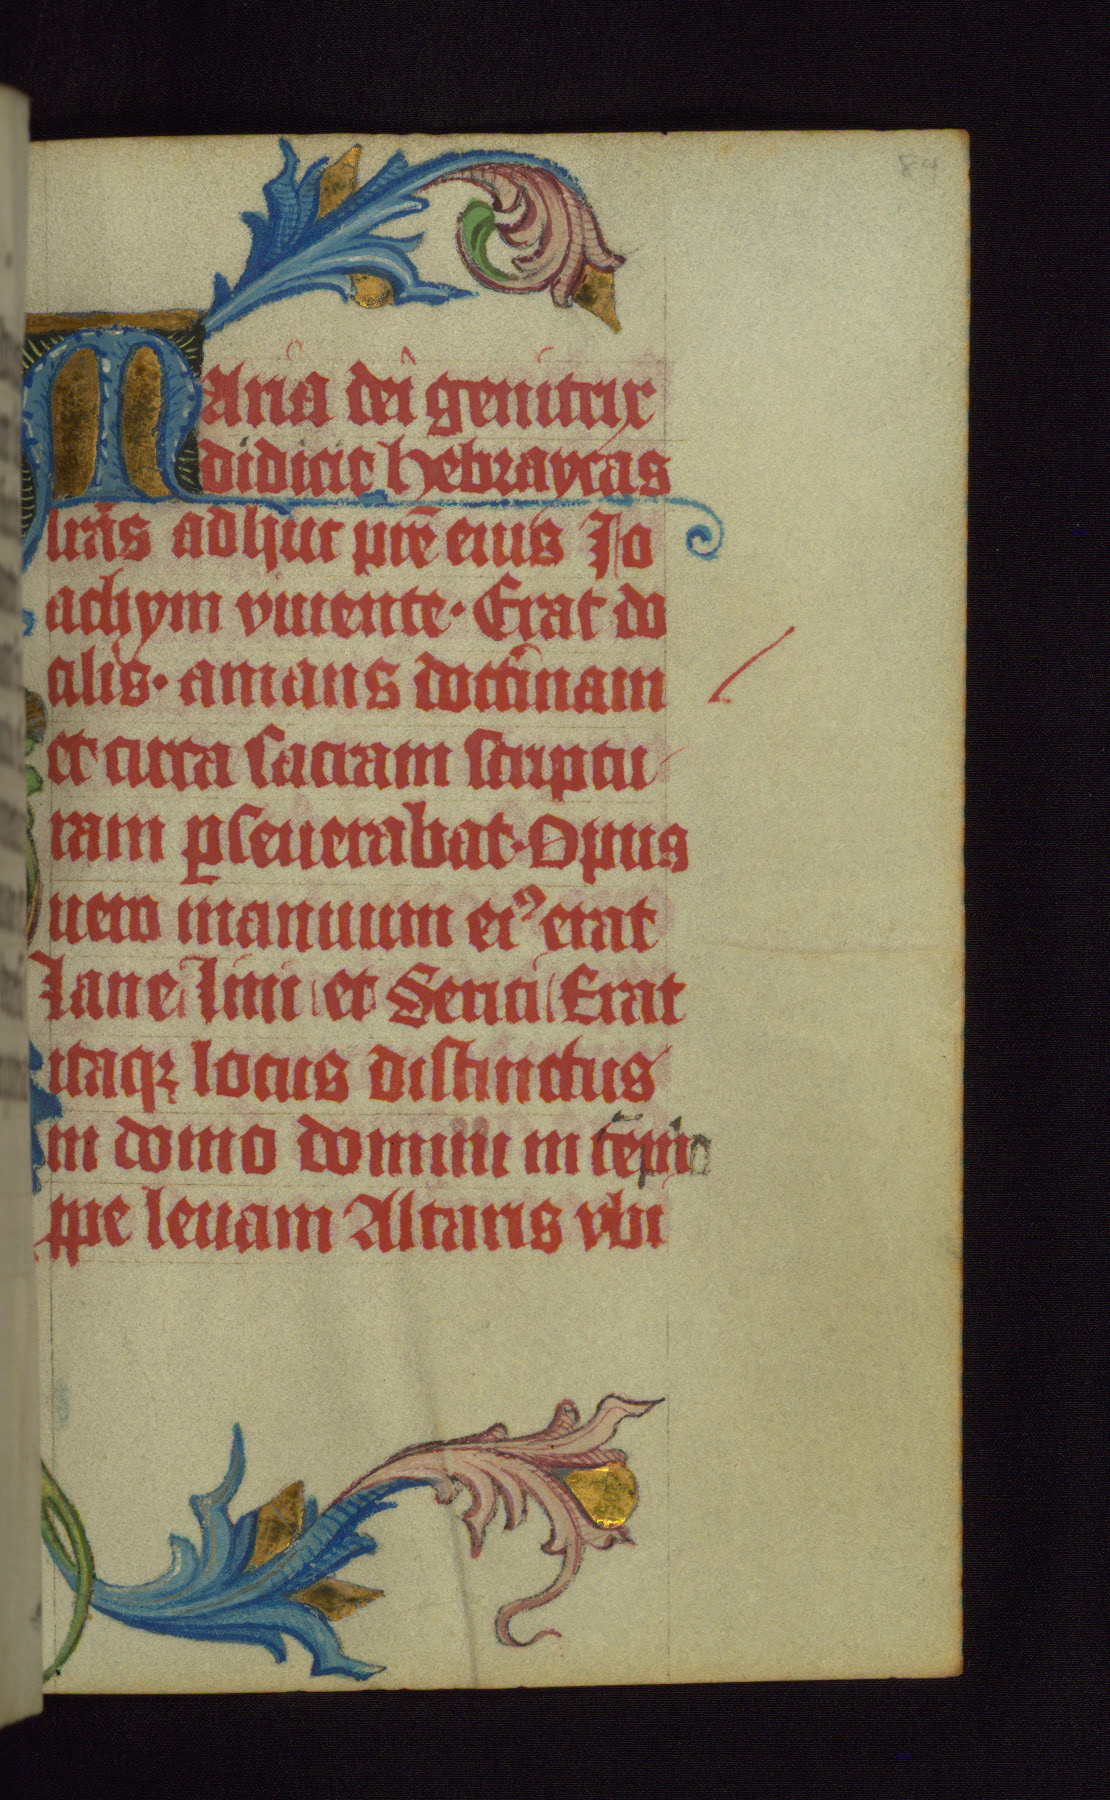 84
Maria dei genitrix
didicit hebraycas
lrās adhuc pr̄e eius Jo
achym viuente· Erat do
cilis· amans doctͥnam
et circa sacram scriptu
ram ꝑseuerabat· Opus
uero manuum eiꝰ erat
Lane Lini et Serici Erat
itaqꝫ locus distinctus
in domo domini in tēplo
ꝓpe leuam Altaris vbi